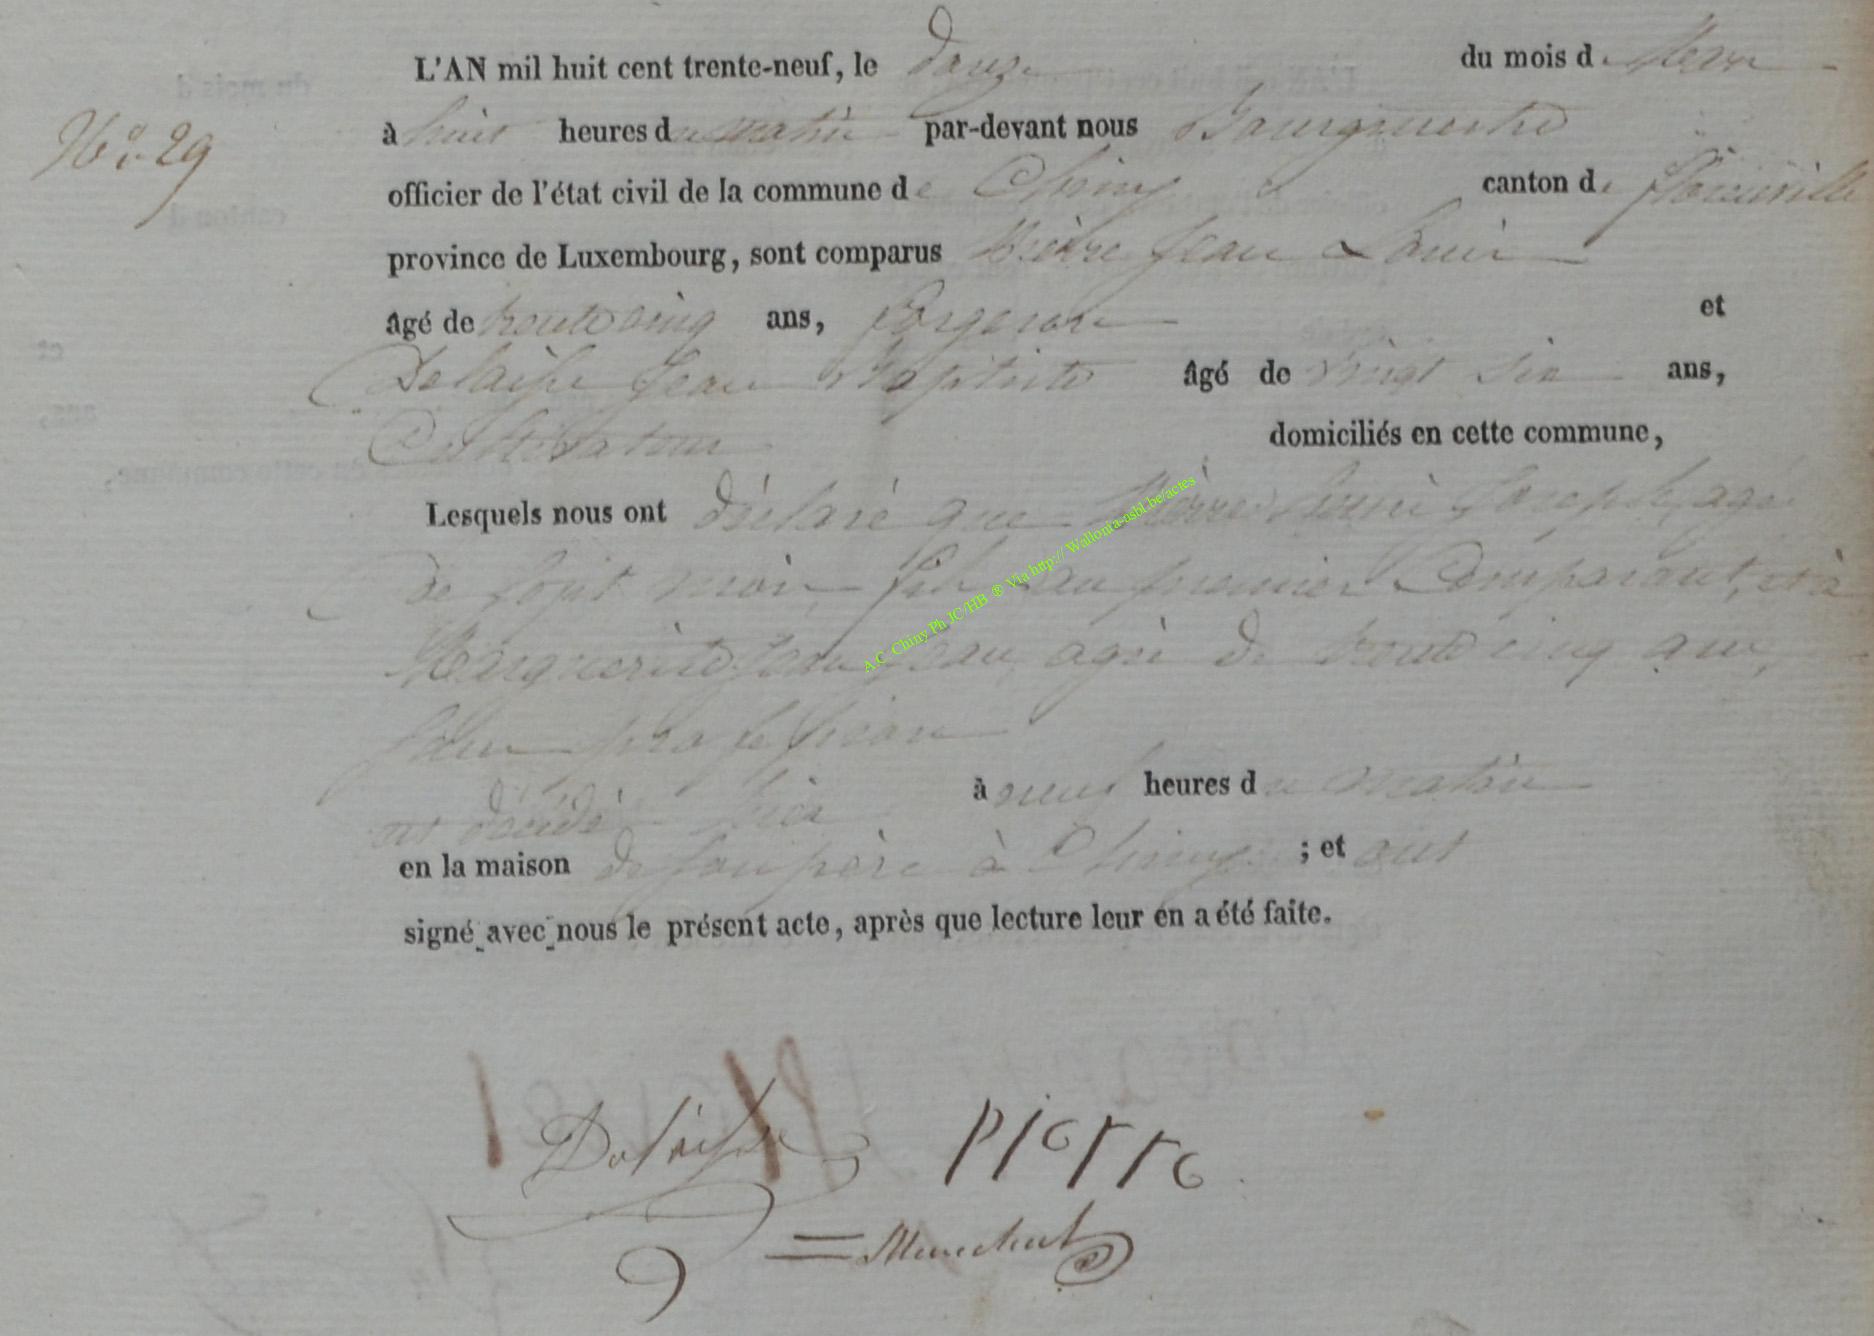 L'AN mil huit cent trente-neuf, le douze du mois de Mars
N° 29
à huit heures du matin par-devant nous Bourgmestre
officier de l'état civil de la commune de Chiny canton de Florenville
province de Luxembourg, sont comparus Pierre Jean Louis
âgé de trente cinq ans, forgeron et
Delaisse Jean Baptiste âgé de vingt six ans,
Cultivateur domiciliés en cette commune,
Lesquels nous ont déclaré que Pierre Joseph, agé
de sept mois, fils au premier Comparant, et à
Marguerite agée de trente cinq ans,
sans profession
est décédé hier à neuf heures du matin
en la maison de son père à Chiny ; et ont
signé avec nous le présent acte, après que lecture leur en a été faite.
A.C Chiny Ph JC/HB ® Via http:// Wallonia-asbl.be/actes
Delaisse Pierre